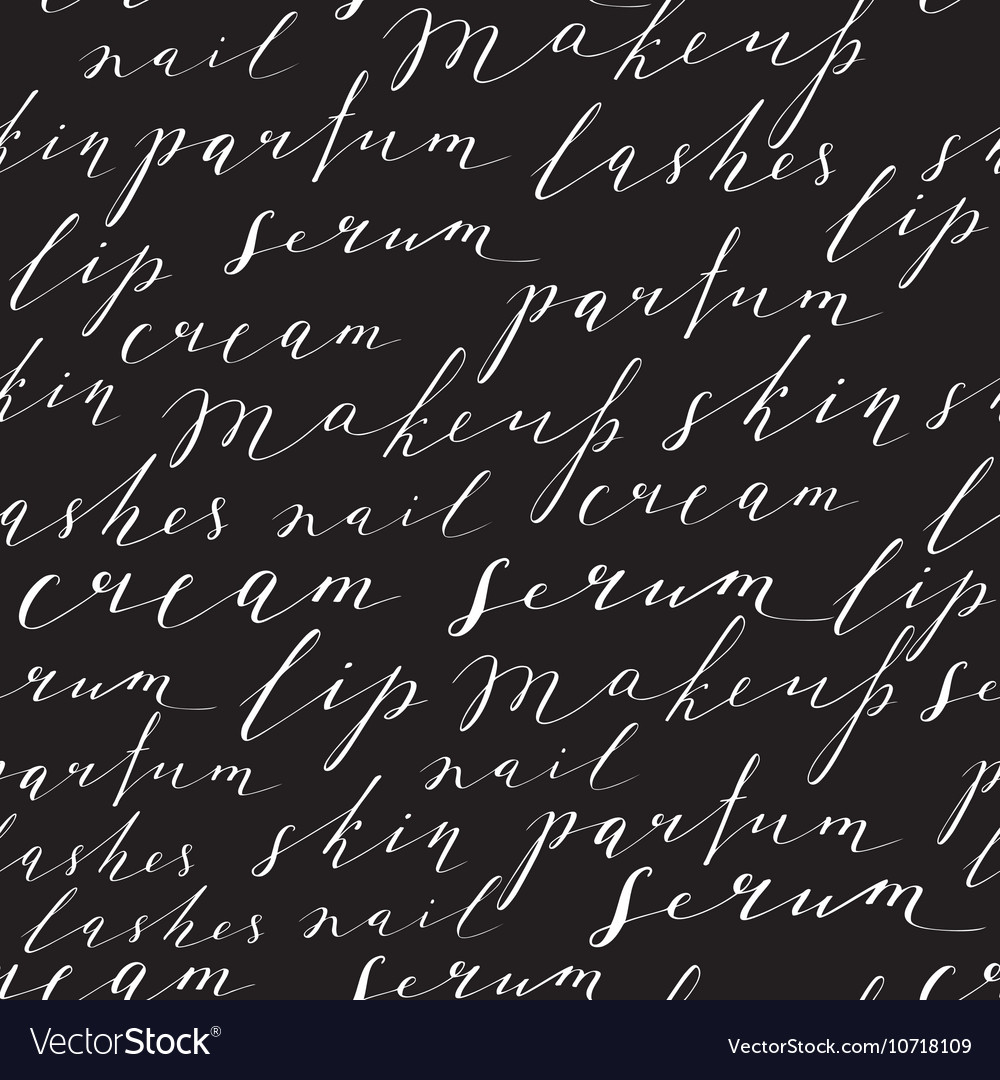 nail makeup
kin parfum lashes s
lip serum lip
cream parfum
kin makeup skin s
ashes nail cream l
cream serum lip
rum lip makeup se
parfum nail p
lashes skin parfum l
lashes nail serum
ream serum c
VectorStock® VectorStock.com/10718109